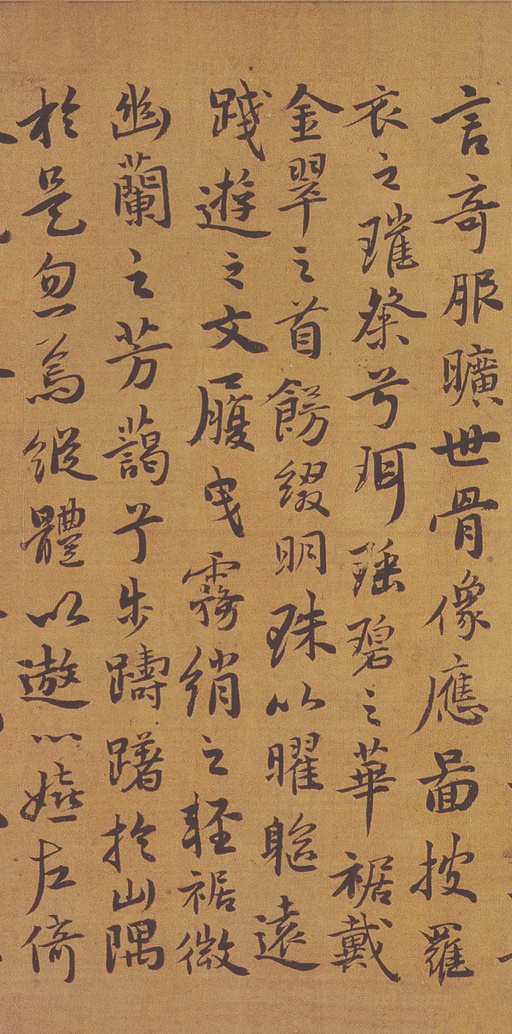 言奇服曠世骨像應圖披羅
衣之璀粲兮珥瑤碧之華裾戴
金翠之首餝綴明珠以曜軀遠
踐遊之文履曳霧綃之輕裾微
幽蘭之芳藹兮步躊躇於山隅
於是忽焉縱體以遨以嬉左倚